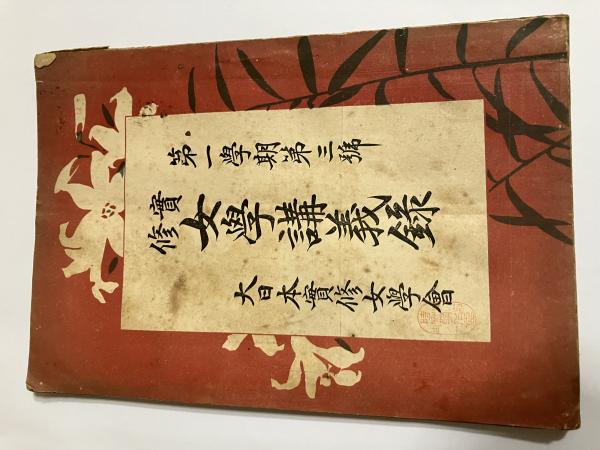 第一學期第三號
實修
女學講義錄
大日本實修女學會